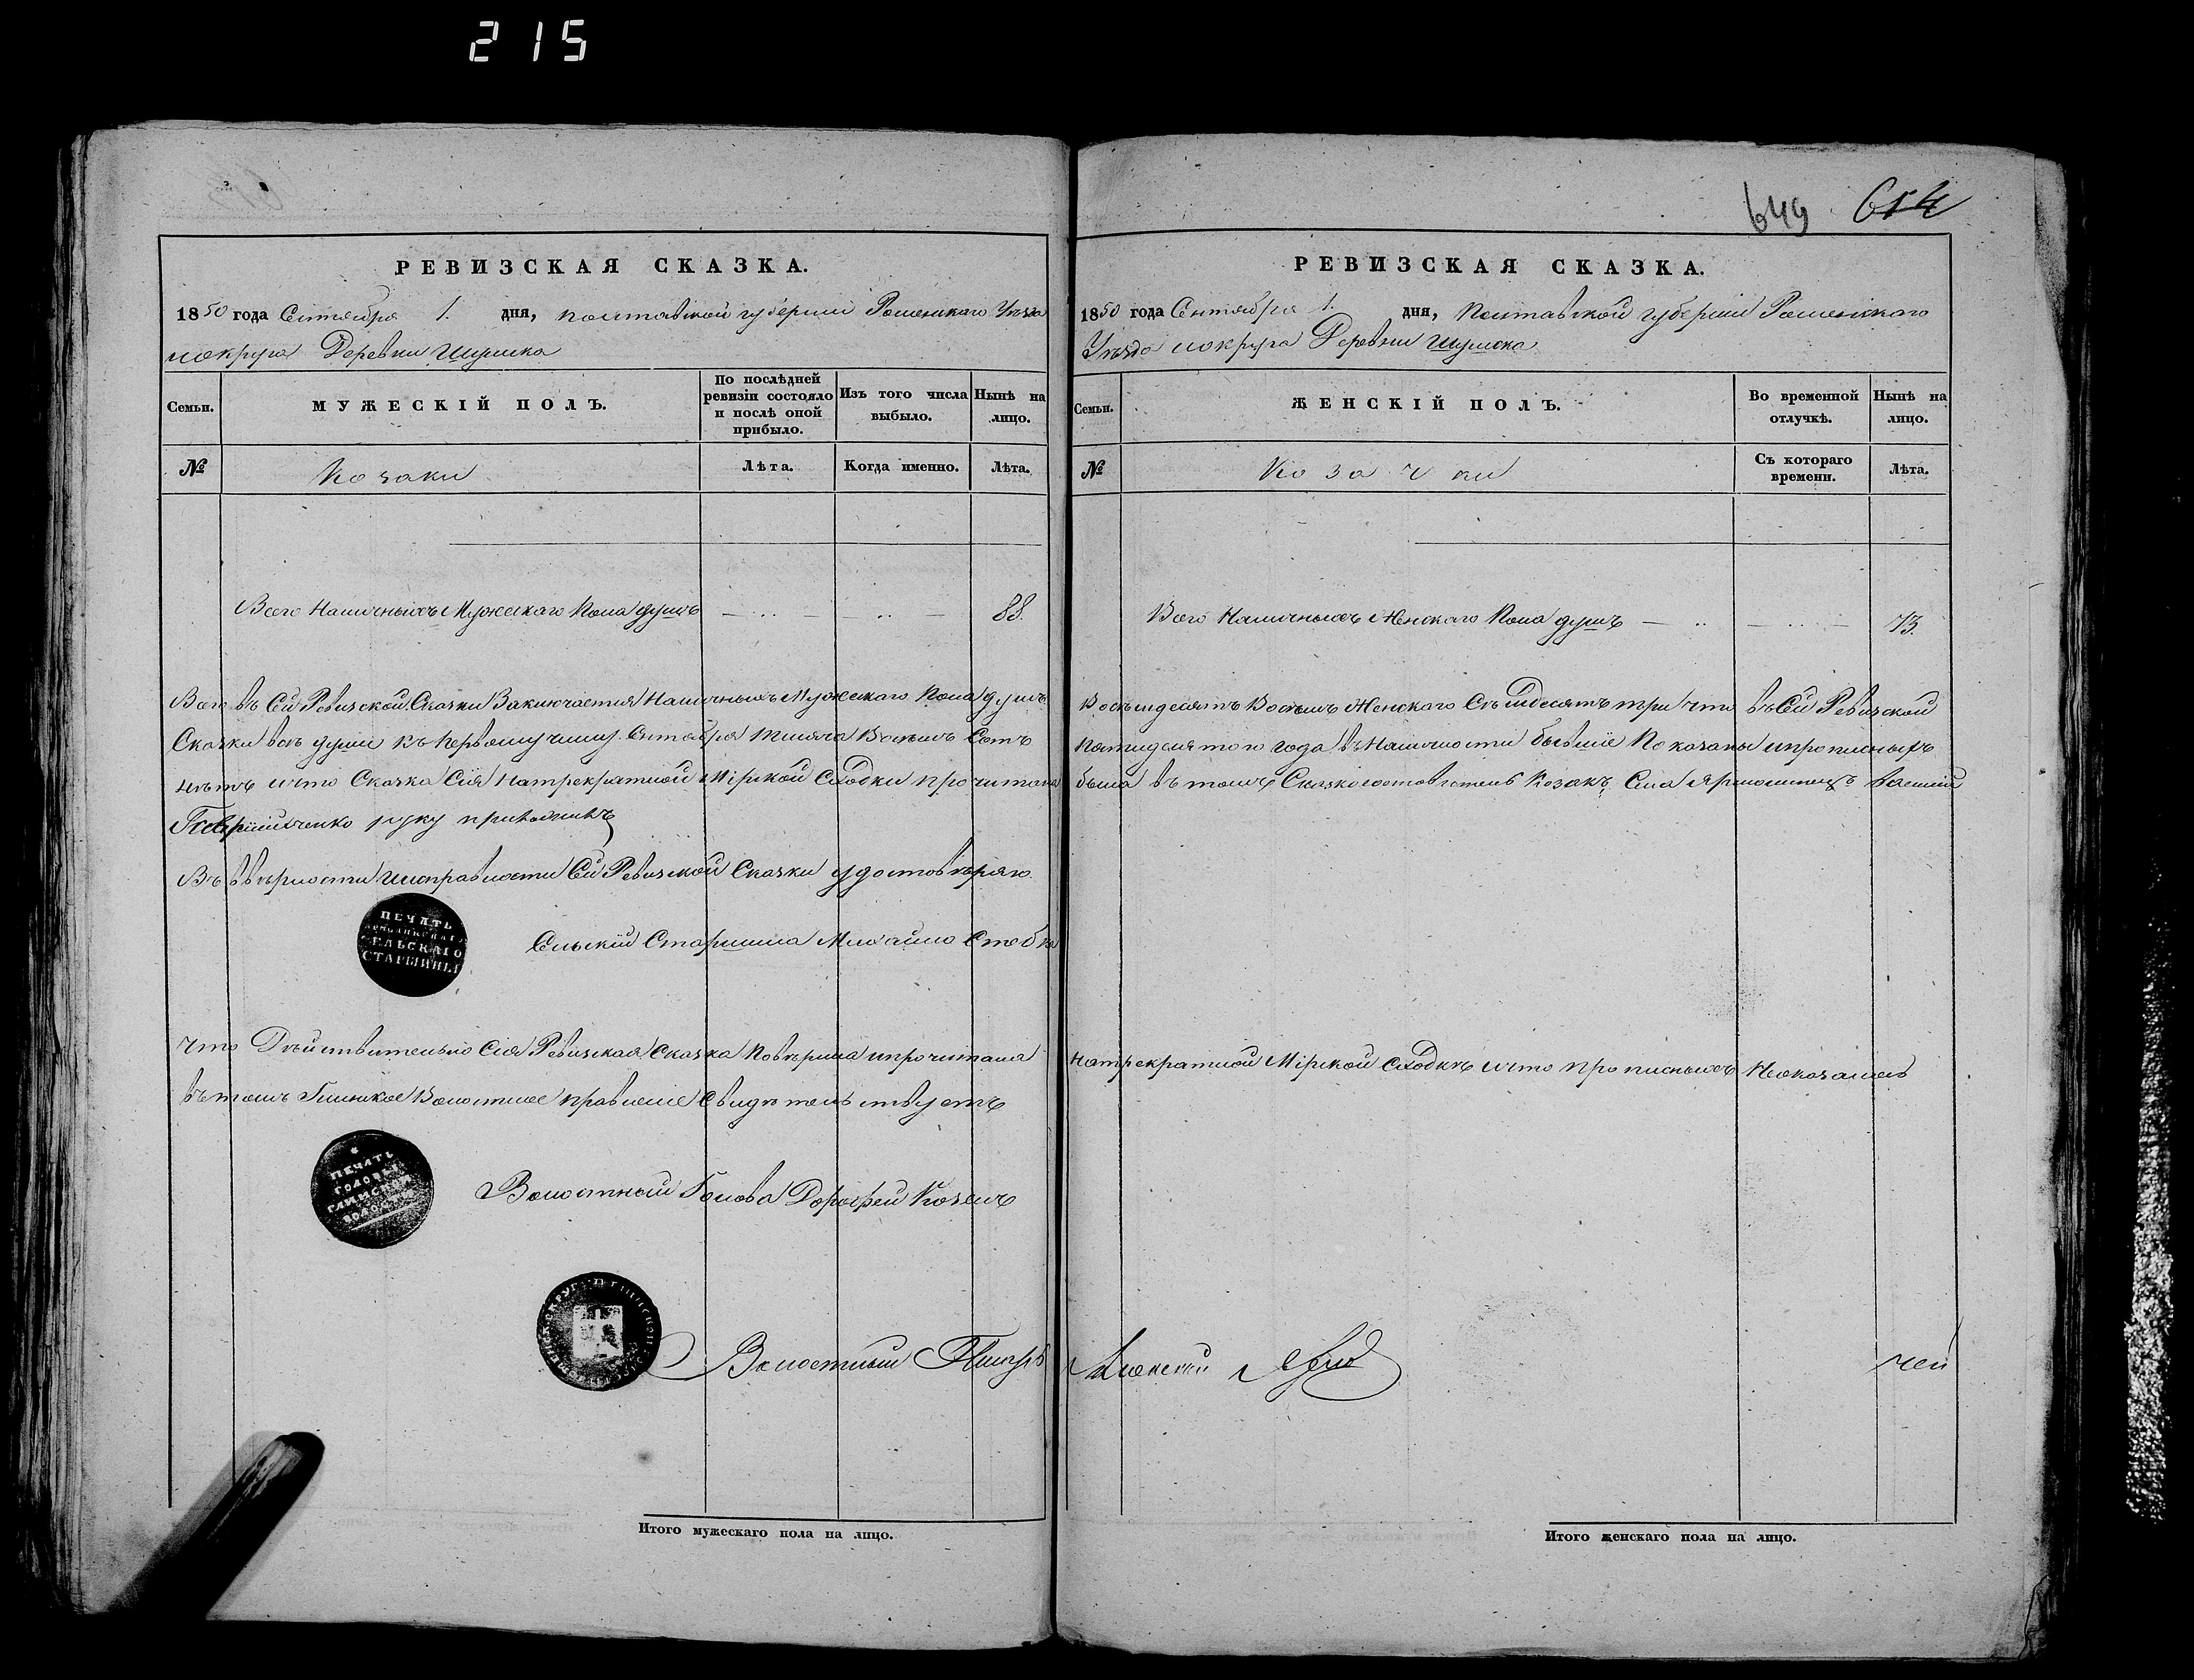 215
649 654
РЕВИЗСКАЯ СКАЗКА.
1850 года Сентября 1. дня, Полтавской губерніи Роменскаго Уѣзда
и округа Деревни Шумска
Семьи. МУЖЕСКІЙ ПОЛЪ. По послѣдней ревизіи состояло и послѣ оной прибыло. Изъ того числа выбыло. Нынѣ на лицо.
№ Козаки Лѣта. Когда именно. Лѣта.
Всего Наличныхъ Мужескаго Пола душъ 88.
Всего въ Сей Ревизской Сказки Заключается Наличныхъ Мужескаго Пола душъ
Сказки всѣ души къ первому числу Сентября тысяча Восемь Сотъ
нѣтъ и что Сказка Сія На трекратной Мірской Сходки прочитана
руку приложилъ
Въ вѣрности и исправности Сей Ревизской Сказки удостовѣряю
ПЕЧАТЬ
СЕЛЬСКАГО
СТАРШИНЫ
Сельскій Старшина Михайло Стебл
Что Дѣйствительно Сія Ревизская Сказка Повѣрена и прочитана
въ томъ Глинское Волостное правленіе Свидѣтельствуетъ
ПЕЧАТЬ
ГОЛОВЫ
ГЛИНСКОЙ
ВОЛОСТИ
Волостный Голова Дорофей Козелъ
Волостный Писарь
Итого мужескаго пола на лицо.
РЕВИЗСКАЯ СКАЗКА.
1850 года Сентября 1. дня, Полтавской губерніи Роменскаго
Уѣзда и округа Деревни Шумска
Семьи. ЖЕНСКІЙ ПОЛЪ. Во временной отлучкѣ. Нынѣ на лицо.
№ Козачки Съ котораго времени. Лѣта.
Всего Наличныхъ Женскаго Пола душъ 73.
Восемдесятъ Восемь Женскаго Семдесятъ три что въ Сей Ревизской
Пятидесятого года въ Наличности бывшіе Показаны и прописныхъ
была въ томъ Сказкосоставитель Козакъ
На трекратной Мірской Сходкѣ и что прописныхъ Неоказалось
Итого женскаго пола на лицо.